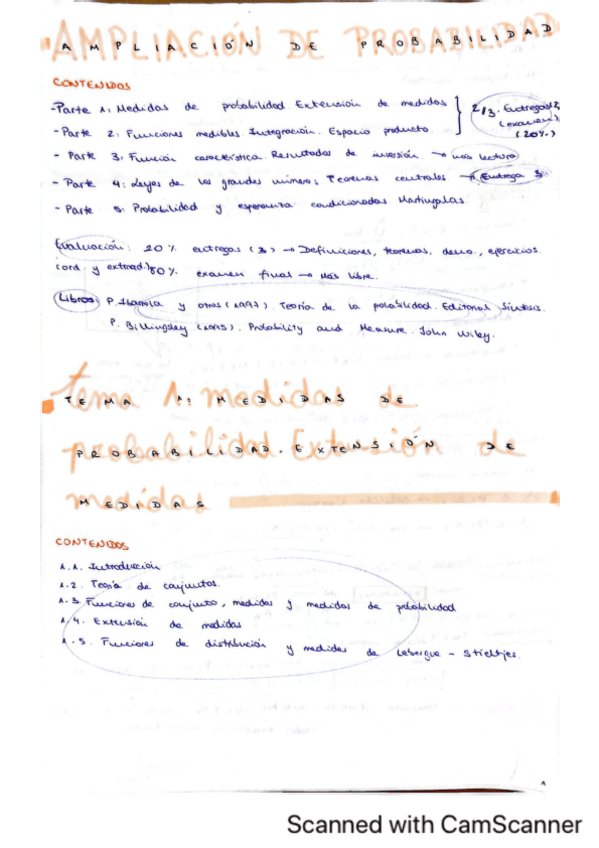 AMPLIACIÓN DE PROBABILIDAD
CONTENIDOS
-Parte 1: Medidas de probabilidad. Extensión de medidas
- Parte 2: Funciones medibles Integración. Espacio producto.
2/3. Entregas 1, 2, (examen) (20%)
- Parte 3: Función característica. Resultados de inversión. → más lectura
- Parte 4: Leyes de los grandes números; Teoremas centrales → Entrega 3
- Parte 5: Probabilidad y esperanza condicionadas Martingalas
Evaluación: 20% entregas (3) → Definiciones, teoremas, demo., ejercicios.
(ord. y extraord.) 80% examen final → más libre.
Libros P. Ibarrola y otros (1997). Teoría de la probabilidad. Editorial Síntesis.
P. Billingsley (1995). Probability and Measure. John Wiley.
Tema 1: medidas de
TEMA 1: MEDIDAS DE
probabilidad. Extensión de
PROBABILIDAD. EXTENSIÓN DE
medidas
MEDIDAS
CONTENIDOS
1.1. Introducción
1.2. Teoría de conjuntos.
1.3. Funciones de conjunto, medidas y medidas de probabilidad
1.4. Extensión de medidas
1.5. Funciones de distribución y medidas de Lebergue - Stieltjes.
1
Scanned with CamScanner